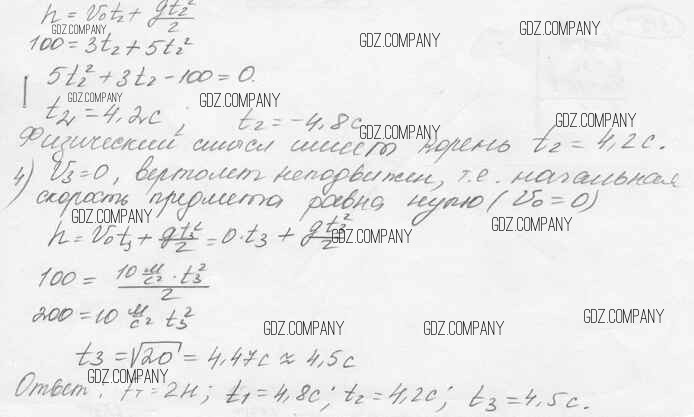 h = V₀t₂ + gt₂²/2
GDZ.COMPANY
GDZ.COMPANY
100 = 3t₂ + 5t₂²
5t₂² + 3t₂ - 100 = 0.
GDZ.COMPANY GDZ.COMPANY
t₂₁ = 4,2с ; t₂ = -4,8с
GDZ.COMPANY
GDZ.COMPANY
Физический смысл имеет корень t₂ = 4,2с.
4) V₃ = 0, вертолет неподвижен, т.е. начальная
скорость предмета равна нулю (V₀ = 0)
GDZ.COMPANY GDZ.COMPANY
h = V₀t₃ + gt₃²/2 = 0·t₃ + gt₃²/2
GDZ.COMPANY GDZ.COMPANY
100 = 10 м/с² · t₃² / 2
200 = 10 м/с² t₃²
GDZ.COMPANY GDZ.COMPANY GDZ.COMPANY
t₃ = √20 = 4,47с ≈ 4,5с
GDZ.COMPANY
Ответ: = 2Н; t₁ = 4,8с; t₂ = 4,2с; t₃ = 4,5с.